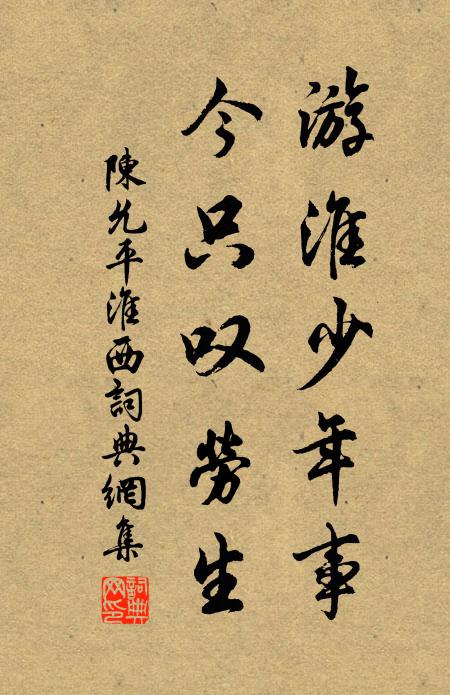 游淮少年事
今只叹勞生
陳允平淮西詞典網集
詞典网印